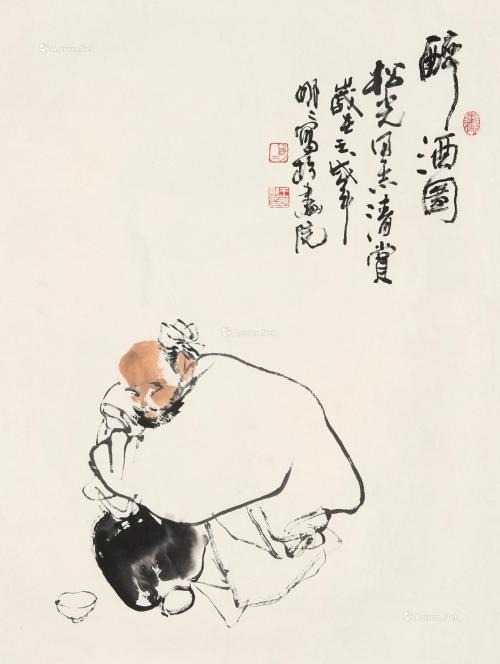 醉酒圖
松光同志清賞
歲在壬戌年
明明寫於畫院
Artron.Net
Artron.Net
Artron.Net
Artron.Net